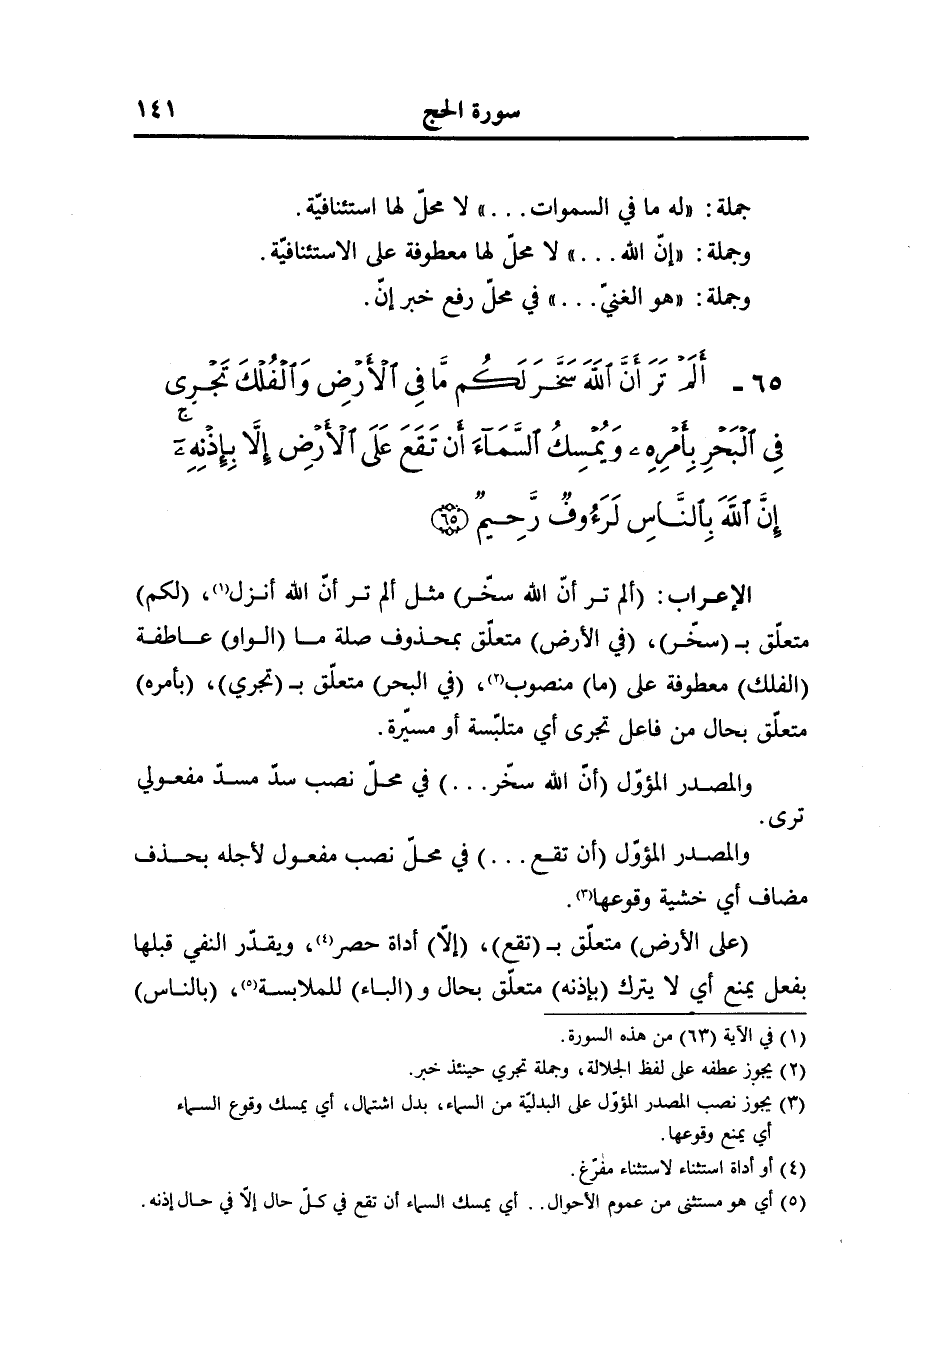 سورة الحج
١٤١
جملة: «له ما في السموات...» لا محلّ لها استئنافيّة.
وجملة: «إنّ الله...» لا محلّ لها معطوفة على الاستئنافيّة.
وجملة: «هو الغنيّ...» في محلّ رفع خبر إنّ.
٦٥ - أَلَمْ تَرَ أَنَّ ٱللَّهَ سَخَّرَ لَكُم مَّا فِى ٱلْأَرْضِ وَٱلْفُلْكَ تَجْرِى
فِى ٱلْبَحْرِ بِأَمْرِهِۦ وَيُمْسِكُ ٱلسَّمَآءَ أَن تَقَعَ عَلَى ٱلْأَرْضِ إِلَّا بِإِذْنِهِۦٓ ۗ
إِنَّ ٱللَّهَ بِٱلنَّاسِ لَرَءُوفٌ رَّحِيمٌ ﴿٦٥﴾
الإعراب: (ألم تر أنّ الله سخّر) مثل ألم تر أنّ الله أنزل(١)، (لكم)
متعلّق بـ (سخّر)، (في الأرض) متعلّق بمحذوف صلة ما (الواو) عاطفة
(الفلك) معطوفة على (ما) منصوب(٢)، (في البحر) متعلّق بـ (تجري)، (بأمره)
متعلّق بحال من فاعل تجرى أي متلبّسة أو مسيّرة.
والمصدر المؤوّل (أنّ الله سخّر...) في محلّ نصب سدّ مسدّ مفعولي
ترى.
والمصدر المؤوّل (أن تقع...) في محلّ نصب مفعول لأجله بحذف
مضاف أي خشية وقوعها(٣).
(على الأرض) متعلّق بـ (تقع)، (إلّا) أداة حصر(٤)، ويقدّر النفي قبلها
بفعل يمنع أي لا يترك (بإذنه) متعلّق بحال و (الباء) للملابسة(٥)، (بالناس)
(١) في الآية (٦٣) من هذه السورة.
(٢) يجوز عطفه على لفظ الجلالة، وجملة تجري حينئذ خبر.
(٣) يجوز نصب المصدر المؤوّل على البدليّة من السماء، بدل اشتمال، أي يمسك وقوع السماء
أي يمنع وقوعها.
(٤) أو أداة استثناء لاستثناء مفرّغ.
(٥) أي هو مستثنى من عموم الأحوال.. أي يمسك السماء أن تقع في كلّ حال إلّا في حال إذنه.